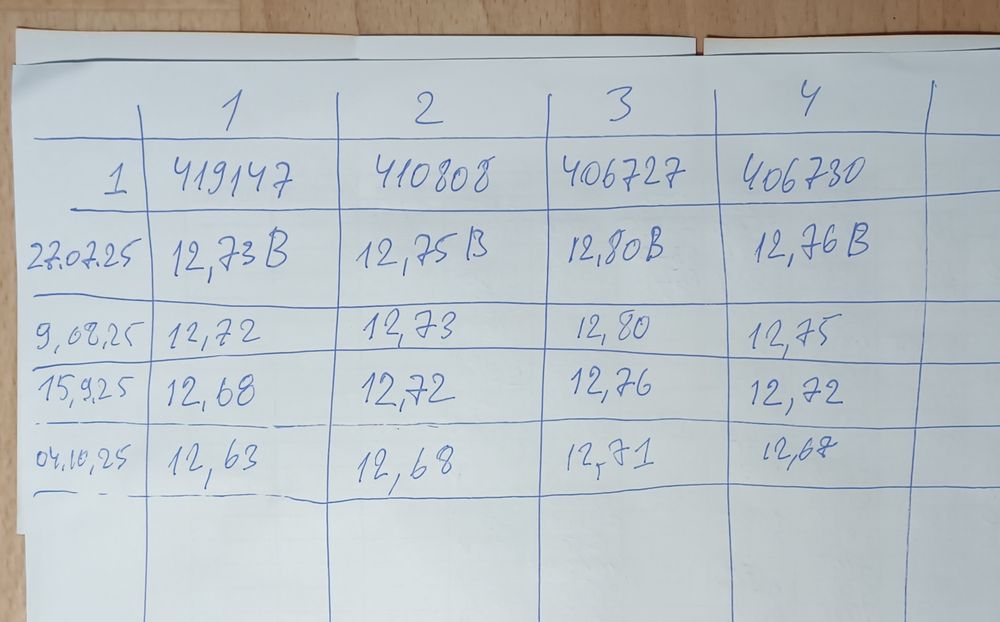 1 2 3 4
1 419147 410808 406727 406730
27.07.25 12,73 В 12,75 В 12,80 В 12,76 В
9,08,25 12,72 12,73 12,80 12,75
15,9.25 12,68 12,72 12,76 12,72
04.10,25 12,63 12,68 12,71 12,67